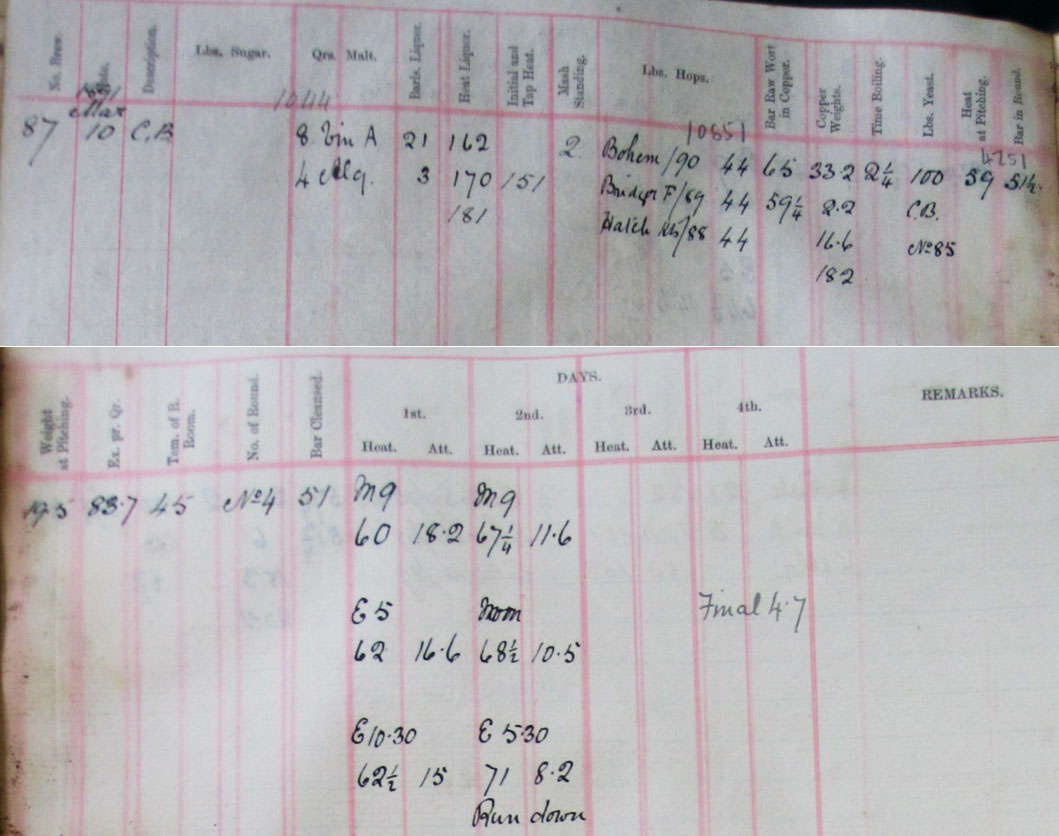 No. Brew.
Date.
Description.
Lbs. Sugar.
Qrs. Malt.
Barls. Liquor.
Heat Liquor.
Initial and Tap Heat.
Mash Standing.
Lbs. Hops.
Bar Raw Wort in Copper.
Copper Weights.
Time Boiling.
Lbs. Yeast.
Heat at Pitching.
Bar in Round.
1891
Mar
1044
10851
4251
87 10 C.B 8 Bin A 21 162 2 Bohem /90 44 65 33.2 2¼ 100 59 51½
4 Alg. 3 170 151 Bridges F/89 44 59¼ 2.2 C.B.
181 Hatch /88 44 16.6 No 85
18.2
Weight at Pitching.
Ex. pr. Qr.
Tem. of R. Room.
No. of Round.
Bar Cleansed.
DAYS.
1st. 2nd. 3rd. 4th.
REMARKS.
Heat. Att. Heat. Att. Heat. Att. Heat. Att.
19.5 83.7 45 No 4 51 M 9 M 9
60 18.2 67¼ 11.6
E 5 Noon Final 4.7
62 16.6 68½ 10.5
E 10.30 E 5.30
62½ 15 71 8.2
Run down